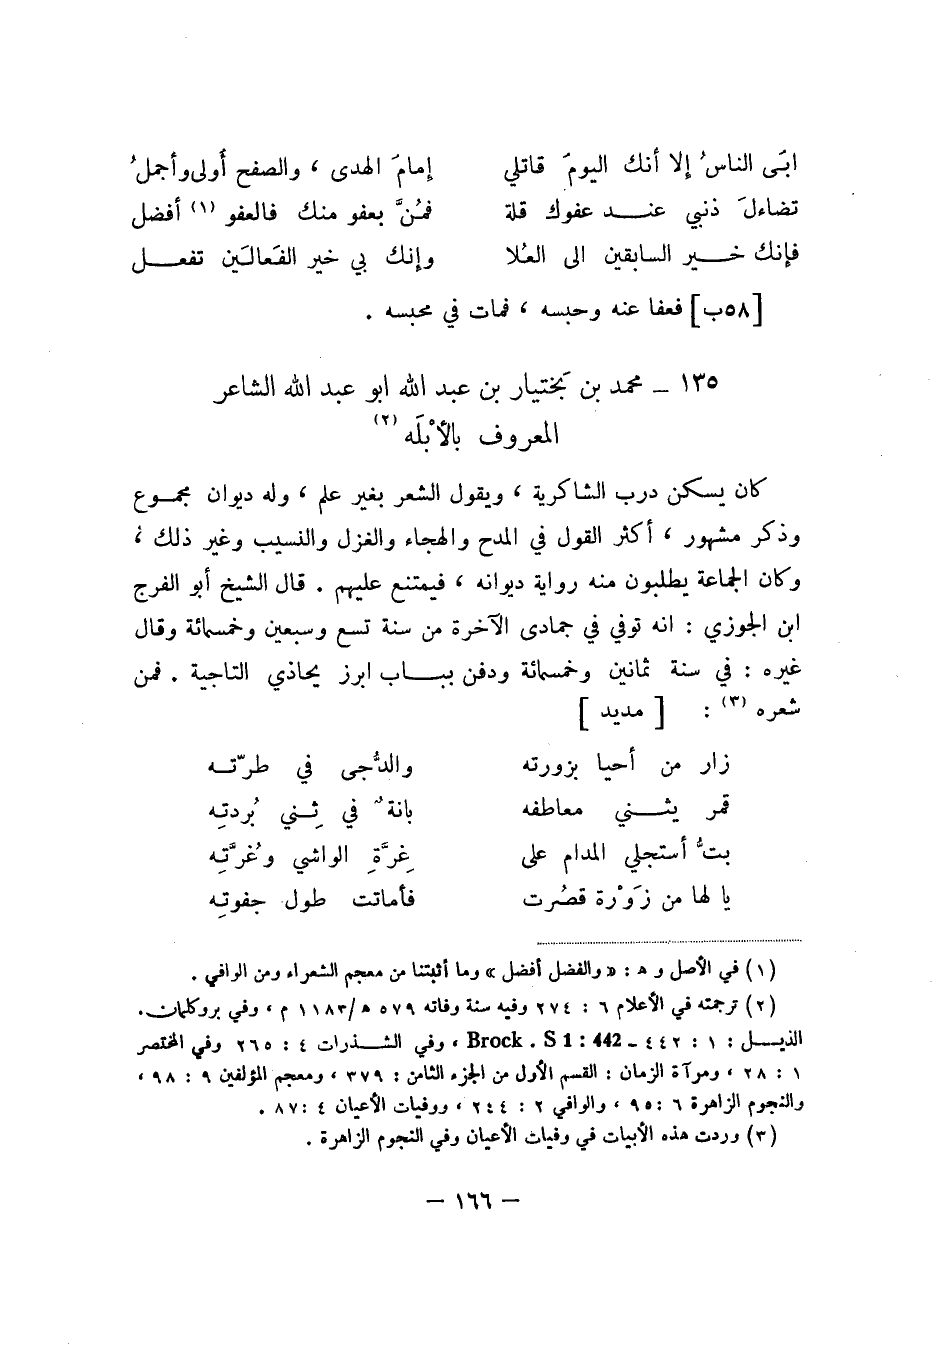 ابَى الناسُ إلا أنك اليومَ قاتلي    إمامَ الهدى ، والصفح أولى وأجملُ
تضاءلَ ذنبي عنـــد عفوك قلة    فمُنَّ بعفو منك فالعفو (١) أفضل
فإنك خـــير السابقين الى العُلا    وإنك بي خير الفَعالَين تفعـــل
[٥٨ب] فعفا عنه وحبسه ، فمات في محبسه .
١٣٥ ــ محمد بن بَختيار بن عبد الله ابو عبد الله الشاعر
المعروف بالأبْلَه (٢)
كان يسكن درب الشاكرية ، ويقول الشعر بغير علم ، وله ديوان مجموع
وذكر مشهور ، أكثر القول في المدح والهجاء والغزل والنسيب وغير ذلك ،
وكان الجماعة يطلبون منه رواية ديوانه ، فيمتنع عليهم . قال الشيخ أبو الفرج
ابن الجوزي : انه توفي في جمادى الآخرة من سنة تسع وسبعين وخمسمائة وقال
غيره : في سنة ثمانين وخمسمائة ودفن ببـــاب ابرز يحاذي التاجية . فمن
شعره (٣) : [ مديد ]
زار من أحيا بزورته    والدُّجى في طرّتـــه
قمر يثـــني معاطفه    بانةٌ في ثِـني بُردتِه
بتُّ أستجلي المدام على    غِرَّةِ الواشي وغُرَّتِه
يا لها من زَوْرة قصُرت    فأماتت طول جفوتِه
(١) في الأصل و ه : « والفضل أفضل » وما أثبتنا من معجم الشعراء ومن الوافي .
(٢) ترجمته في الأعلام ٦ : ٢٧٤ وفيه سنة وفاته ٥٧٩ ه/١١٨٣ م ، وفي بروكلمان.
الذيـــل : ١ : ٤٤٢ ــ Brock . S 1 : 442 ، وفي الشـــذرات ٤ : ٢٦٥ وفي المختصر
١ : ٢٨ ، ومرآة الزمان : القسم الأول من الجزء الثامن : ٣٧٩ ، ومعجم المؤلفين ٩ : ٩٨ ،
والنجوم الزاهرة ٦ :٩٥ ، والوافي ٢ : ٢٤٤ ، ووفيات الأعيان ٤ :٨٧ .
(٣) وردت هذه الأبيات في وفيات الأعيان وفي النجوم الزاهرة .
— ١٦٦ —